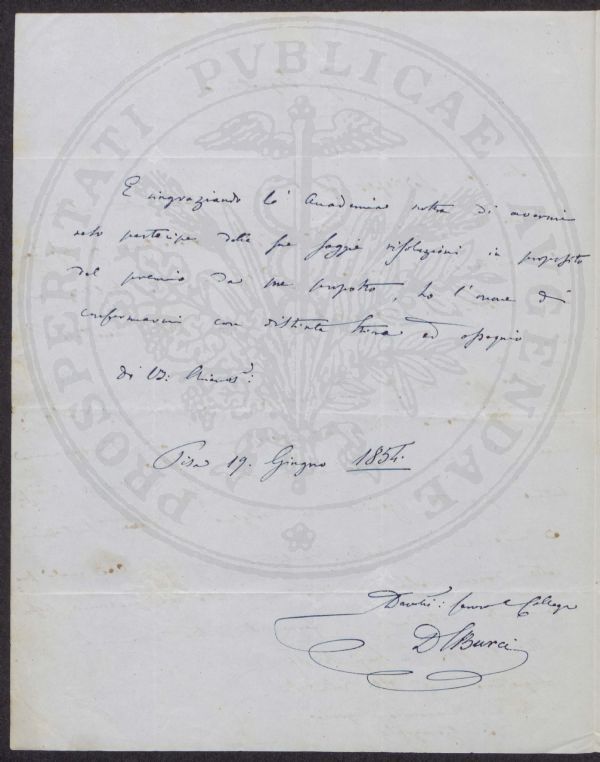 PROSPERITATI PVBLICAE AVGENDAE
E ringraziando l' Accademia nostra di avermi
reso partecipe delle sue saggie risoluzioni in proposito
del premio da me proposto, ho l'onore di
confermarmi con distinta stima ed ossequio
di
Pisa 19. Giugno 1854.
Devmo: servo e Collega
D Burci